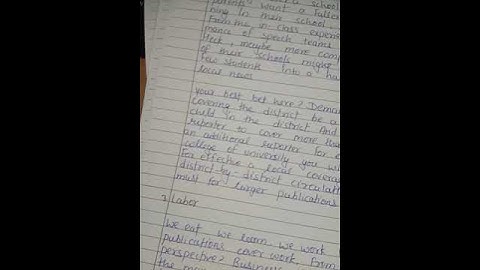 parents? want a fuller
ning in their school.
From me, in class expen
mance of speech teams
track, maybe more comp
of their schools might
few students into a ha
local news
your best bet here? Deman
covering the district be a
child in the district And
reporter to cover more tha
an additional reporter for e
college of university you wi
For effective a local covera
district by- district circulati
must for larger publications
3 Labor
We eat we learn. we work
publications cover work. From
perspective? Busines